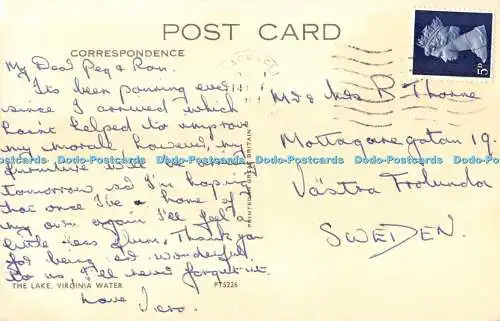 POST CARD
CORRESPONDENCE
My Dear Peg & Ron.
Its been pouring ever
since I arrived which
hasn't helped to improve
my morale, however, my
furniture will be
tomorrow so I'm hoping
that once I've a home of
my own again I'll feel a
little less glum, Thank you
for being so wonderful
to us, I'll never forget it.
Love Vera.
THE LAKE, VIRGINIA WATER
PT5226
PRINTED IN GREAT BRITAIN
5D
Mr & Mrs R Thorne
Mottagaregatan 19.
Västra Frolunda
SWEDEN.
Dodo-Postcards Dodo-Postcards Dodo-Postcards Dodo-Postcards Dodo-Postcards Dodo-Postcards